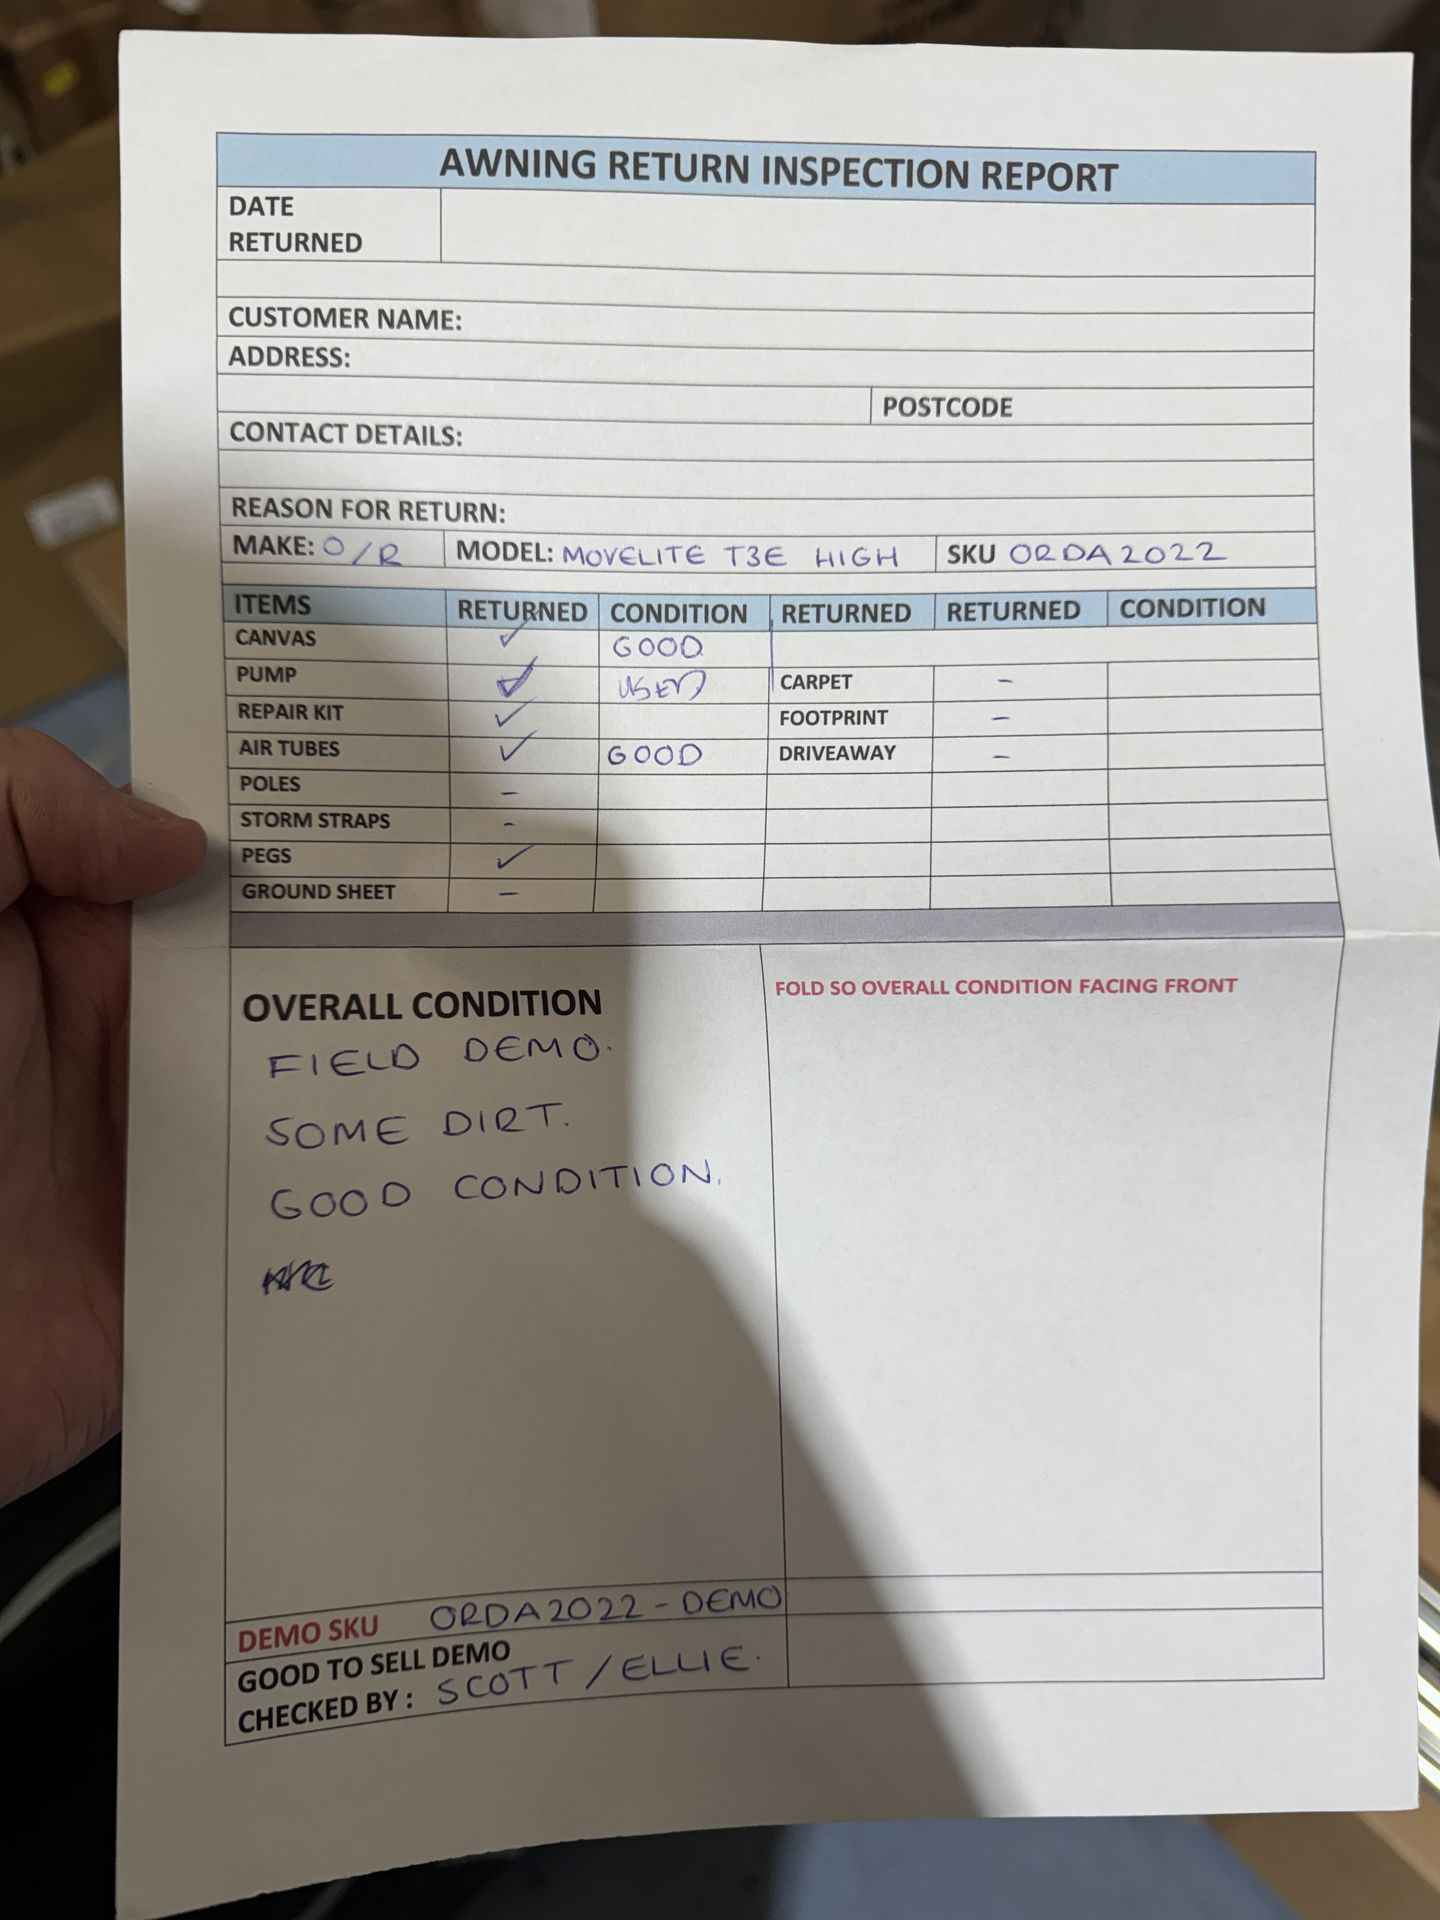 AWNING RETURN INSPECTION REPORT
DATE RETURNED
CUSTOMER NAME:
ADDRESS:
POSTCODE
CONTACT DETAILS:
REASON FOR RETURN:
MAKE: O/R MODEL: MOVELITE T3E HIGH SKU ORDA2022
ITEMS RETURNED CONDITION RETURNED RETURNED CONDITION
CANVAS ✓ GOOD
PUMP ✓ USED CARPET -
REPAIR KIT ✓ FOOTPRINT -
AIR TUBES ✓ GOOD DRIVEAWAY -
POLES -
STORM STRAPS -
PEGS ✓
GROUND SHEET -
OVERALL CONDITION
FOLD SO OVERALL CONDITION FACING FRONT
FIELD DEMO.
SOME DIRT.
GOOD CONDITION.
DEMO SKU ORDA2022-DEMO
GOOD TO SELL DEMO
CHECKED BY: SCOTT/ELLIE.